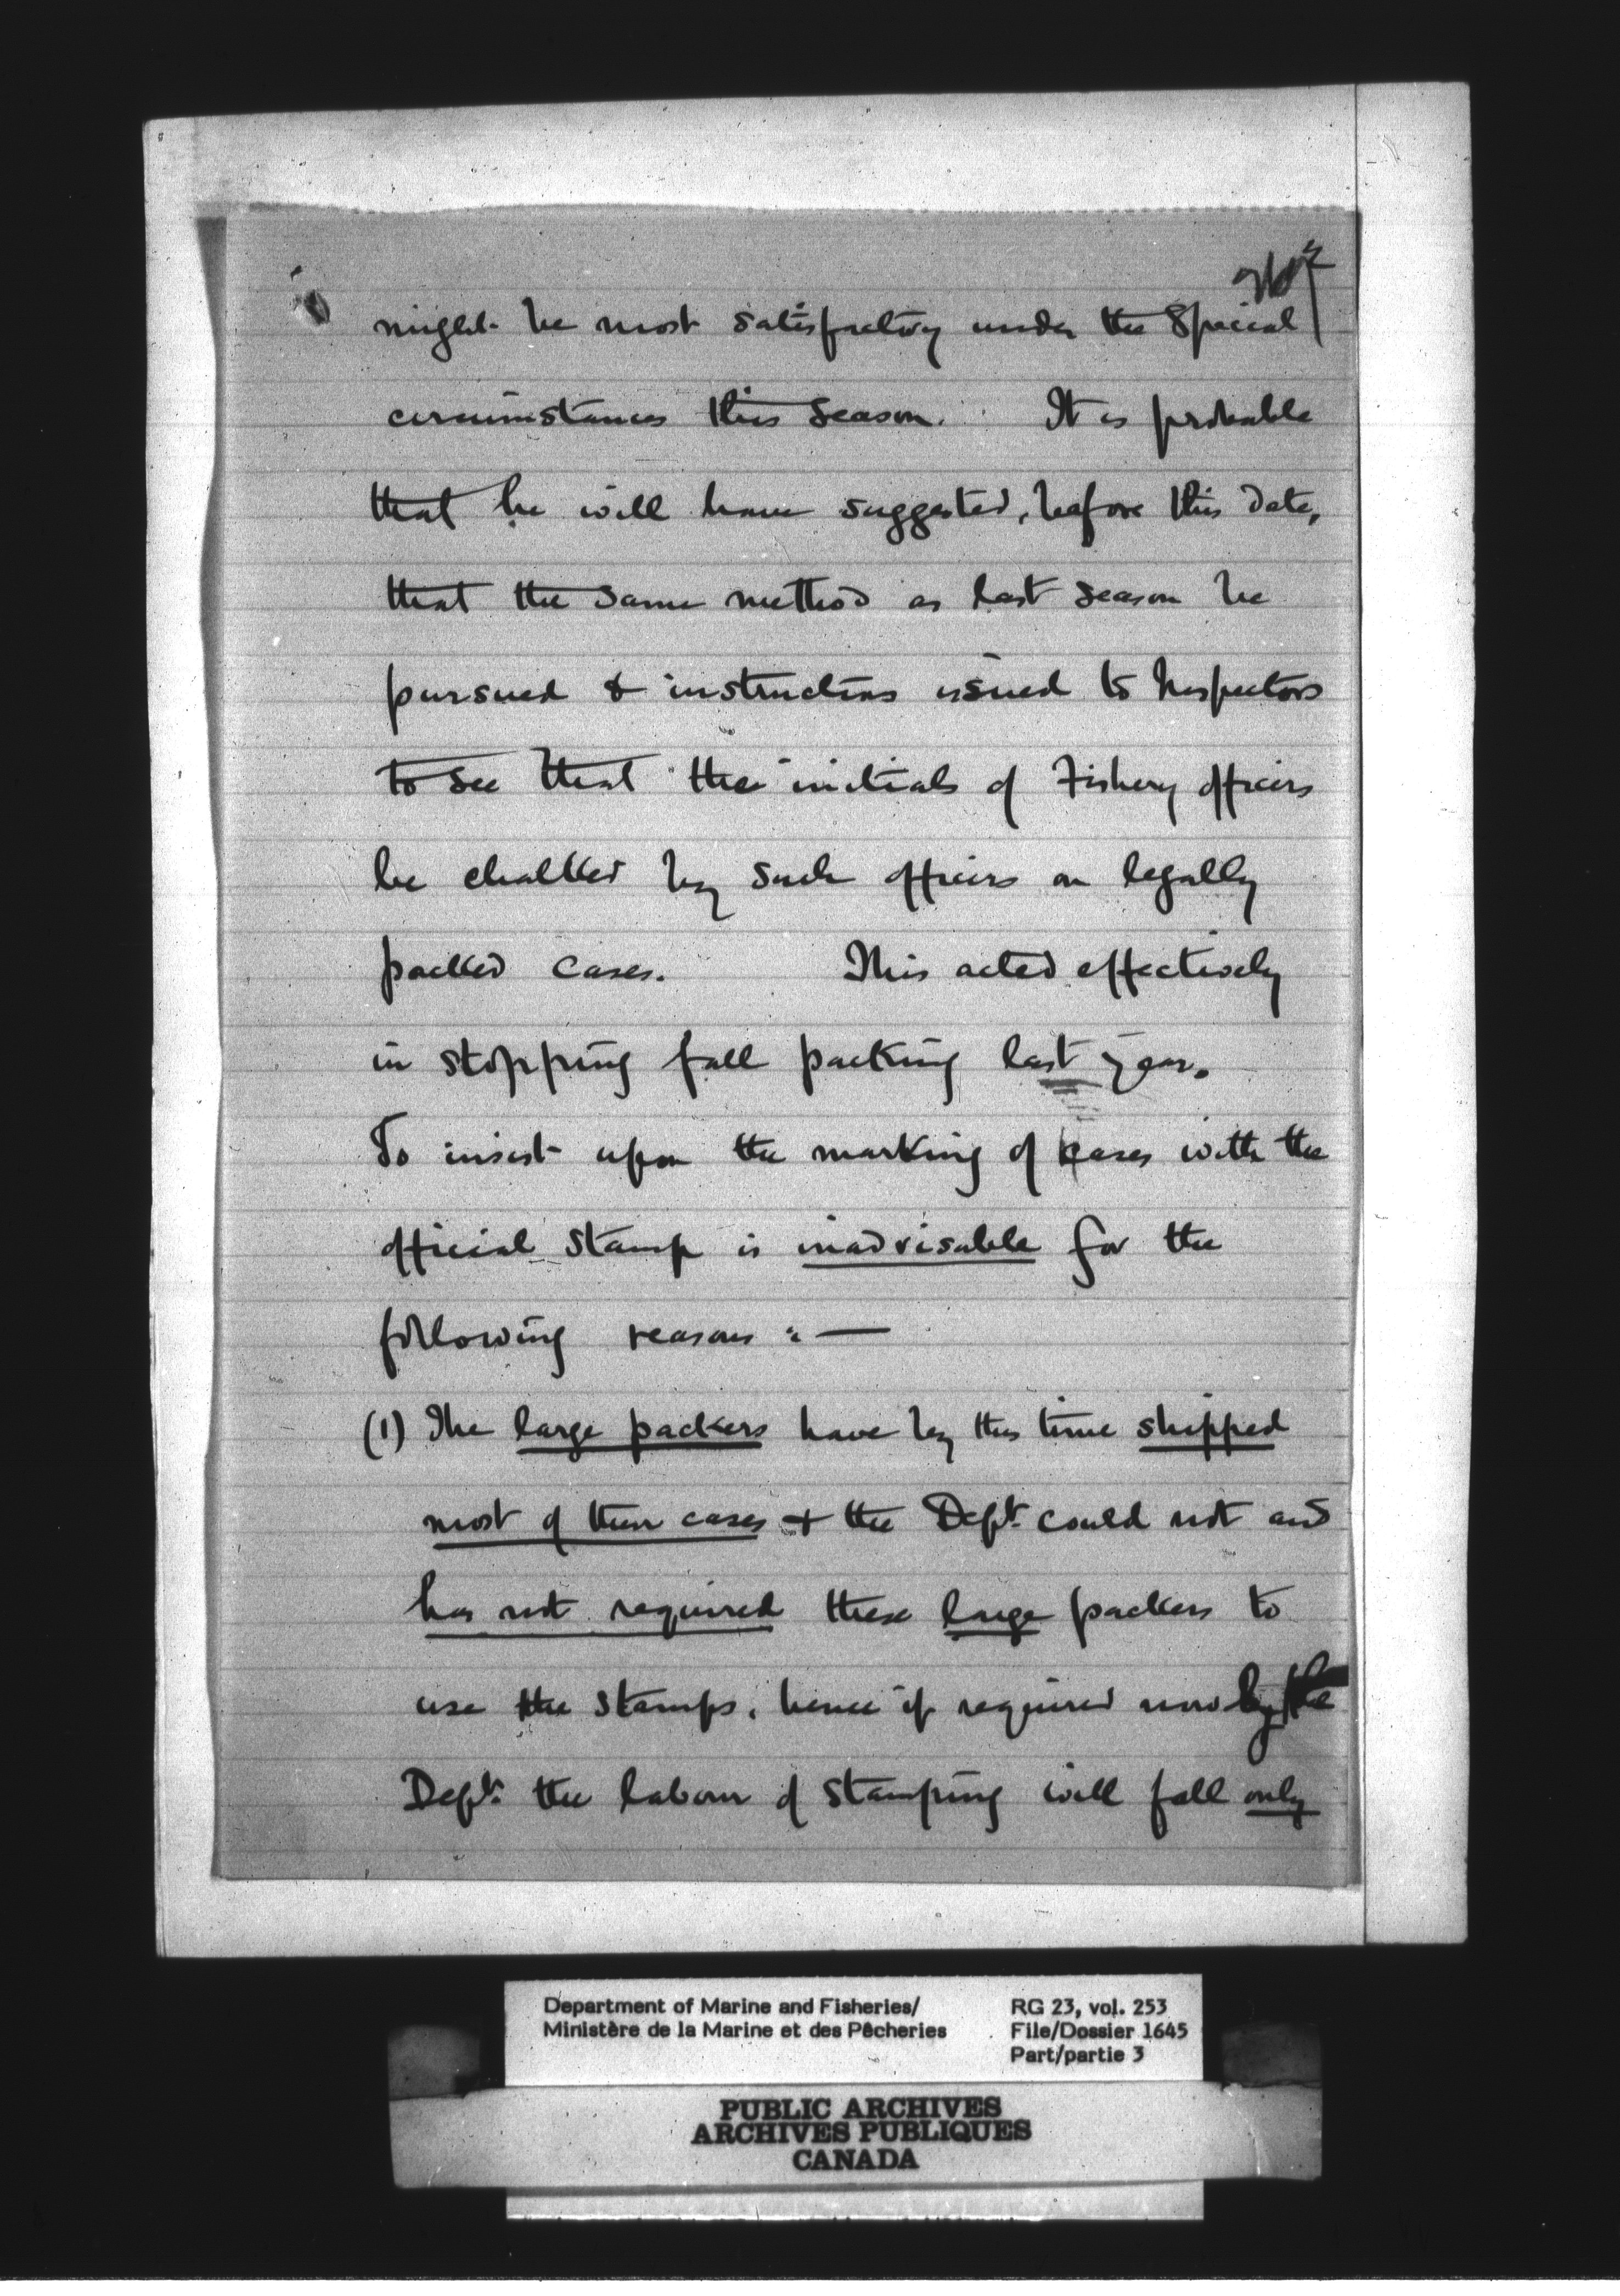 might be most satisfactory under the Special
circumstances this season. It is probable
that he will have suggested, before this date,
that the same method as last season be
pursued & instructions issued to Inspectors
to see that the initials of Fishery officers
be chalked by such officers on legally
packed cases. This acted effectively
in stopping fall packing last year.
To insist upon the marking of cases with the
official stamp is inadvisable for the
following reasons :—
(1) The large packers have by this time shipped
most of their cases & the Dept. could not and
has not required these large packers to
use the stamps, hence if required now by the
Dept. the labour of stamping will fall only
Department of Marine and Fisheries/
Ministère de la Marine et des Pêcheries
RG 23, vol. 253
File/Dossier 1645
Part/partie 3
PUBLIC ARCHIVES
ARCHIVES PUBLIQUES
CANADA